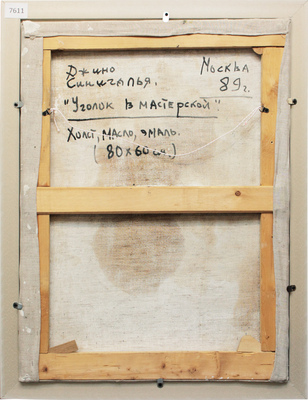 7611
Джино Москва
Синигалья. 89г.
"Уголок в мастерской"
Холст, масло, эмаль.
(80x60см.)